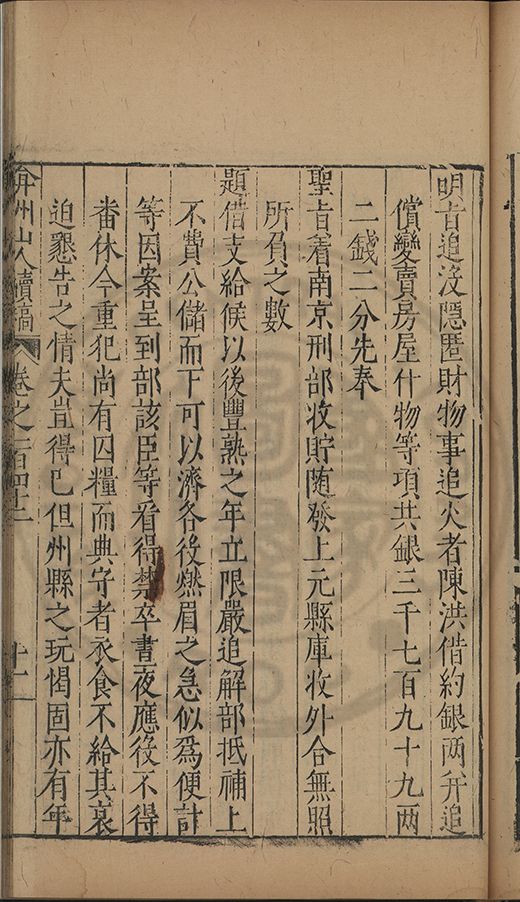 明旨追沒隱匿財物事追火者陳洪借約銀两并追
償變賣房屋什物等項共銀三千七百九十九两
二錢二分先奉
聖旨着南京刑部收貯随發上元縣庫收外合無照
所負之數
題借支給候以後豐熟之年立限嚴追解部抵補上
不費公儲而下可以濟各役燃眉之急似爲便計
等因案呈到部該臣等看得禁卒晝夜應役不得
番休今重犯尚有囚糧而典守者衣食不給其哀
迫懇告之情夫豈得已但州縣之玩愒固亦有年
弇州山人續稿 卷之一百四十二 十二